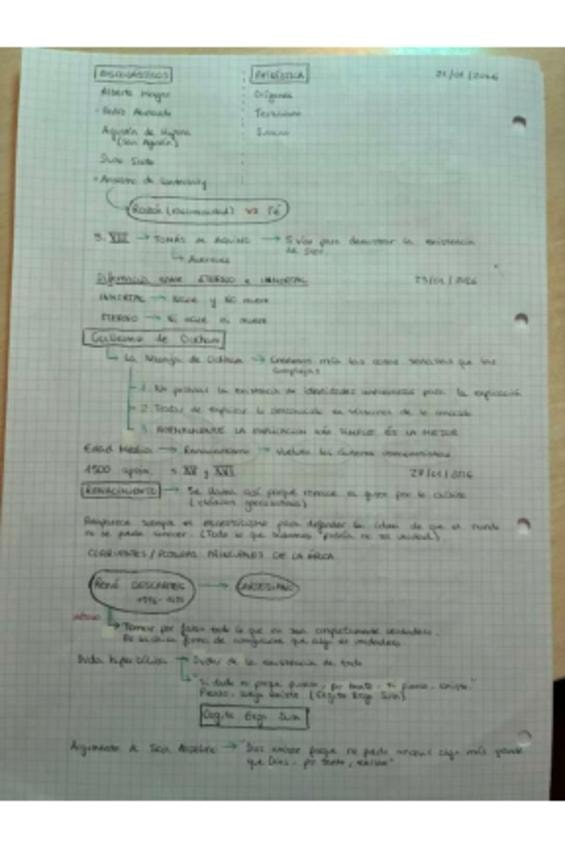 ESCOLÁSTICOS
PATRÍSTICA
21/01/2016
Alberto Magno
Orígenes
Pedro Abelardo
Tertuliano
Agustín de Hipona
(San Agustín)
Duns Scoto
Anselmo de Canterbury
Razón (racionalidad) vs Fé
S. XIII → TOMÁS DE AQUINO → 5 vías para demostrar la existencia
de Dios
↳ Averroes
Diferencia entre ETERNO e INMORTAL
INMORTAL → Nace y no muere
ETERNO → Ni nace ni muere
Guillermo de Ockham
La Navaja de Ockham → las cosas sencillas que las
complejas
1. No postular la existencia de innecesarias para la explicación
2. Tratar de explicar lo desconocido en términos de lo conocido
3. NORMALMENTE LA EXPLICACIÓN MÁS SIMPLE ES LA MEJOR
Edad Media → Renacimiento → Vuelven los
1500 aprox. s. XV y XVI
27/01/2016
RENACIMIENTO → Se llama así porque renace el gusto por lo clásico
Reaparece siempre el escepticismo para defender la idea de que el mundo
no se puede conocer. (Todo lo que podría no ser verdad)
CORRIENTES / PRINCIPALES DE LA ÉPOCA
René DESCARTES
1596-1650
→
Tomar por falso todo lo que no sea completamente verdadero.
forma de que algo es verdadero
Duda hiperbólica → Dudar de la existencia de todo
"Si dudo es porque pienso, por tanto, si pienso, existo."
Pienso, luego existo (Cogito Ergo Sum)
Cogito Ergo Sum
Argumento de San Anselmo → "Dios existe porque no puedo algo más grande
que Dios, por tanto, existe"